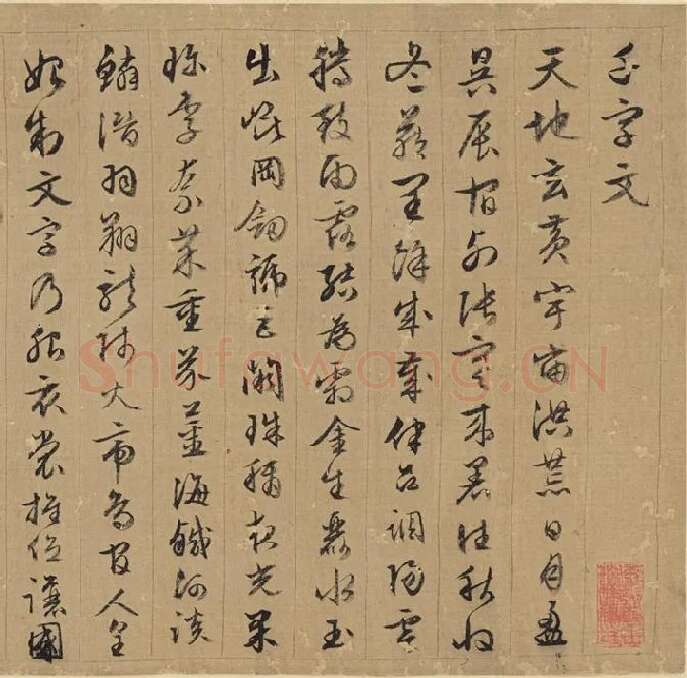 千字文
天地玄黃宇宙洪荒日月盈
昃辰宿列張寒來暑往秋收
冬藏閏餘成歲律呂調陽雲
騰致雨露結為霜金生麗水玉
出崑岡劍號巨闕珠稱夜光果
珍李柰菜重芥薑海鹹河淡
鱗潛羽翔龍師火帝鳥官人皇
始制文字乃服衣裳推位讓國
Shufawang.CN